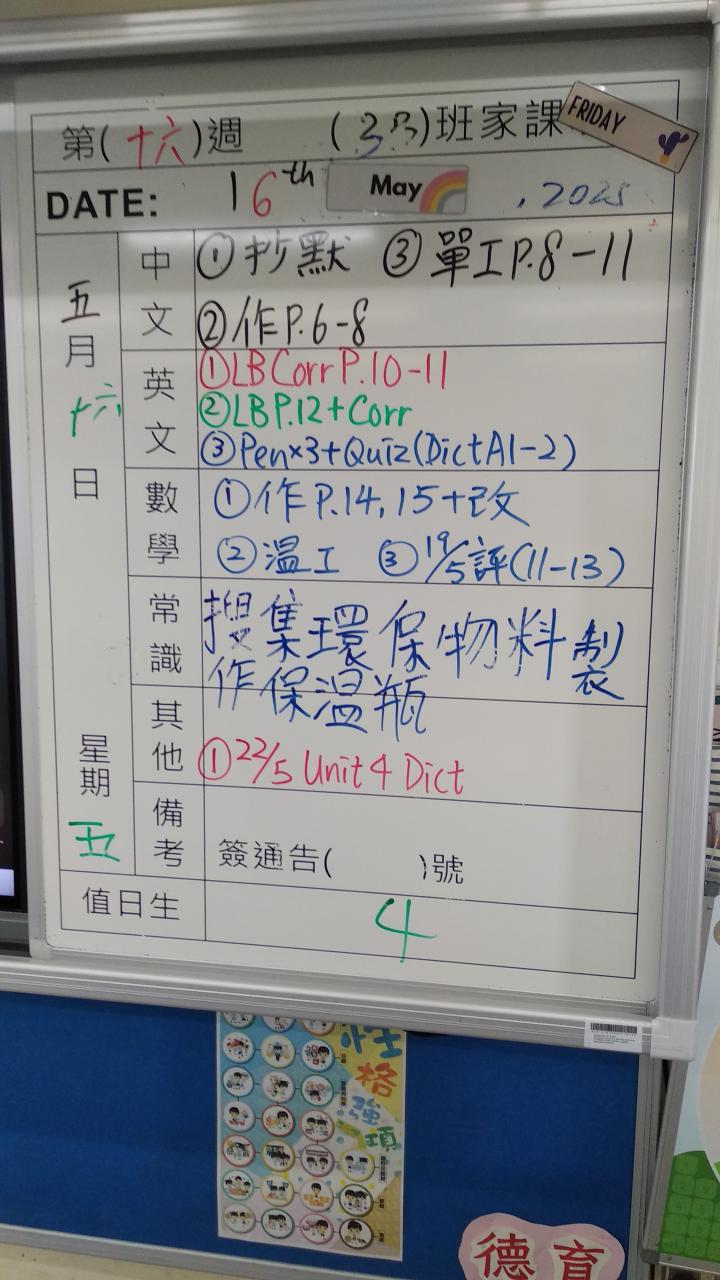 第(十六)週 (3B)班家課
FRIDAY
DATE: 16th May , 2025
五月十六日 星期五
中文
①抄默 ③單工P.8-11
②作P.6-8
英文
①LB Corr P.10-11
②LB P.12+Corr
③Pen×3+Quiz(Dict A1-2)
數學
①作P.14,15+改
②溫工 ③19/5評(11-13)
常識
搜集環保物料製
作保溫瓶
其他
①22/5 Unit 4 Dict
備考
簽通告( )號
值日生
4
性格強項
德育